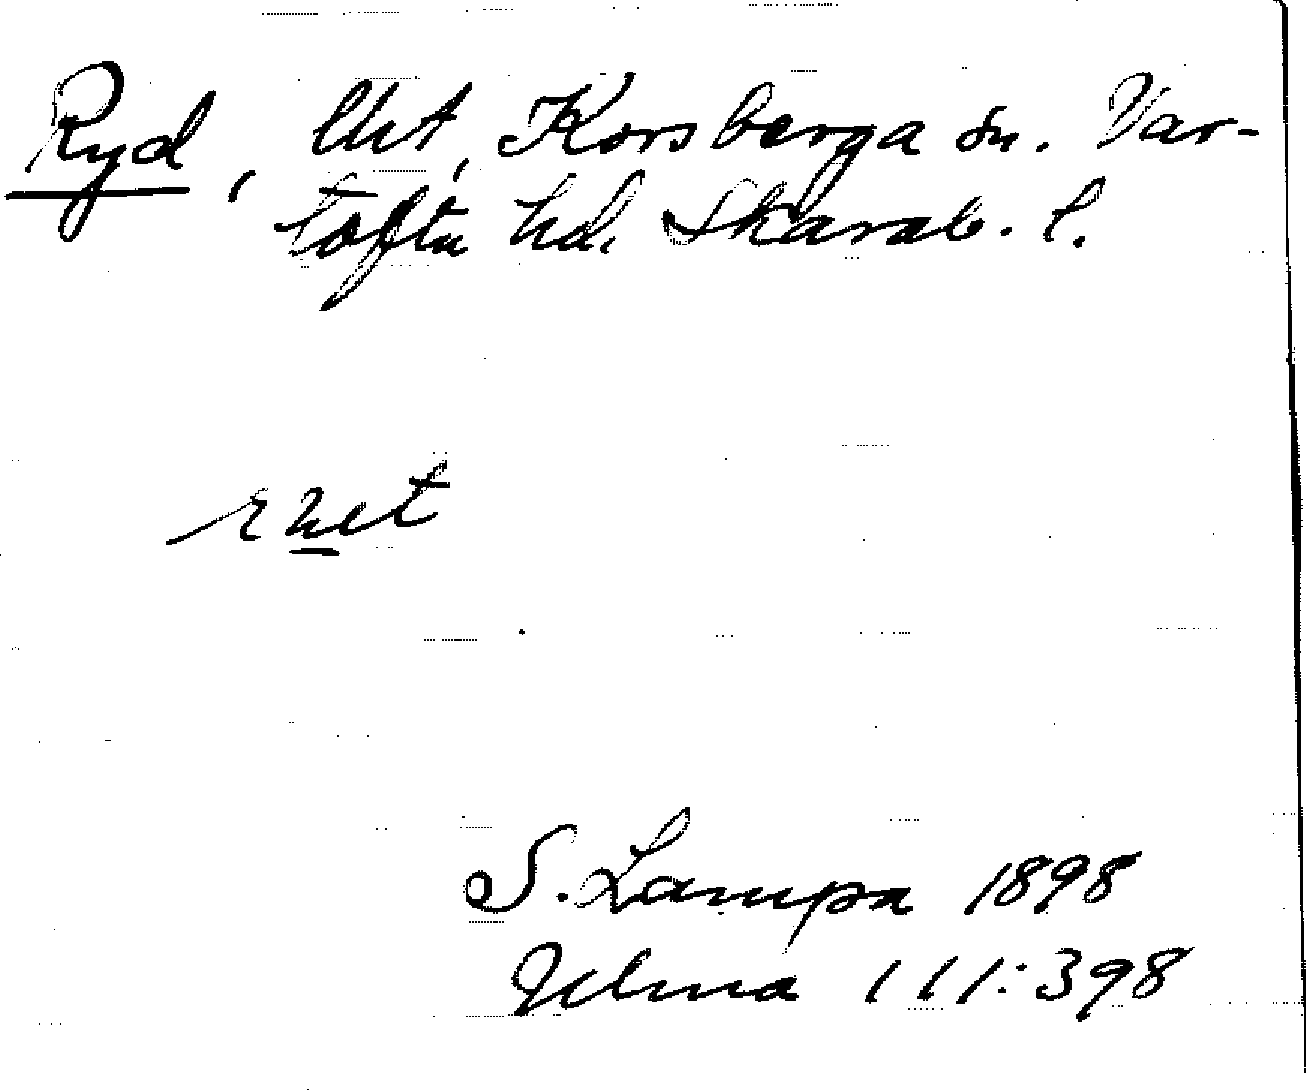 Ryd, Utt, Korsberga sn. Var-
tofta hd. Skarab. l.
S. Lampa 1898
111:398